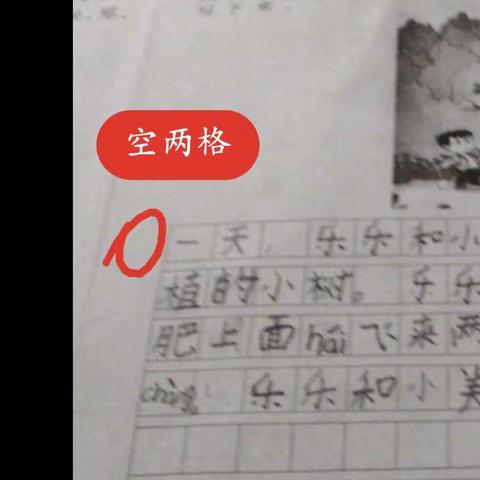 空两格
一天，乐乐和小
植的小树。乐乐
肥上面hái飞来两
乐乐和小美